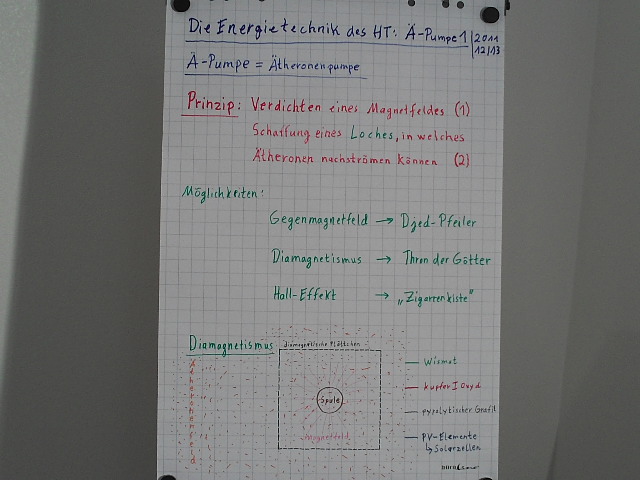 Die Energietechnik des HT: Ä-Pumpe 1
2011
12/13
Ä-Pumpe = Ätheronenpumpe
Prinzip: Verdichten eines Magnetfeldes (1)
Schaffung eines Loches, in welches
Ätheronen nachströmen können (2)
Möglichkeiten:
Gegenmagnetfeld → Djed-Pfeiler
Diamagnetismus → Thron der Götter
Hall-Effekt → „Zigarrenkiste"
Diamagnetismus
diamagnetische Plättchen
Ätheronenfeld
Spule
Magnetfeld
Wismut
Kupfer I Oxyd
pyrolytischer Grafit
PV-Elemente
↳ Solarzellen